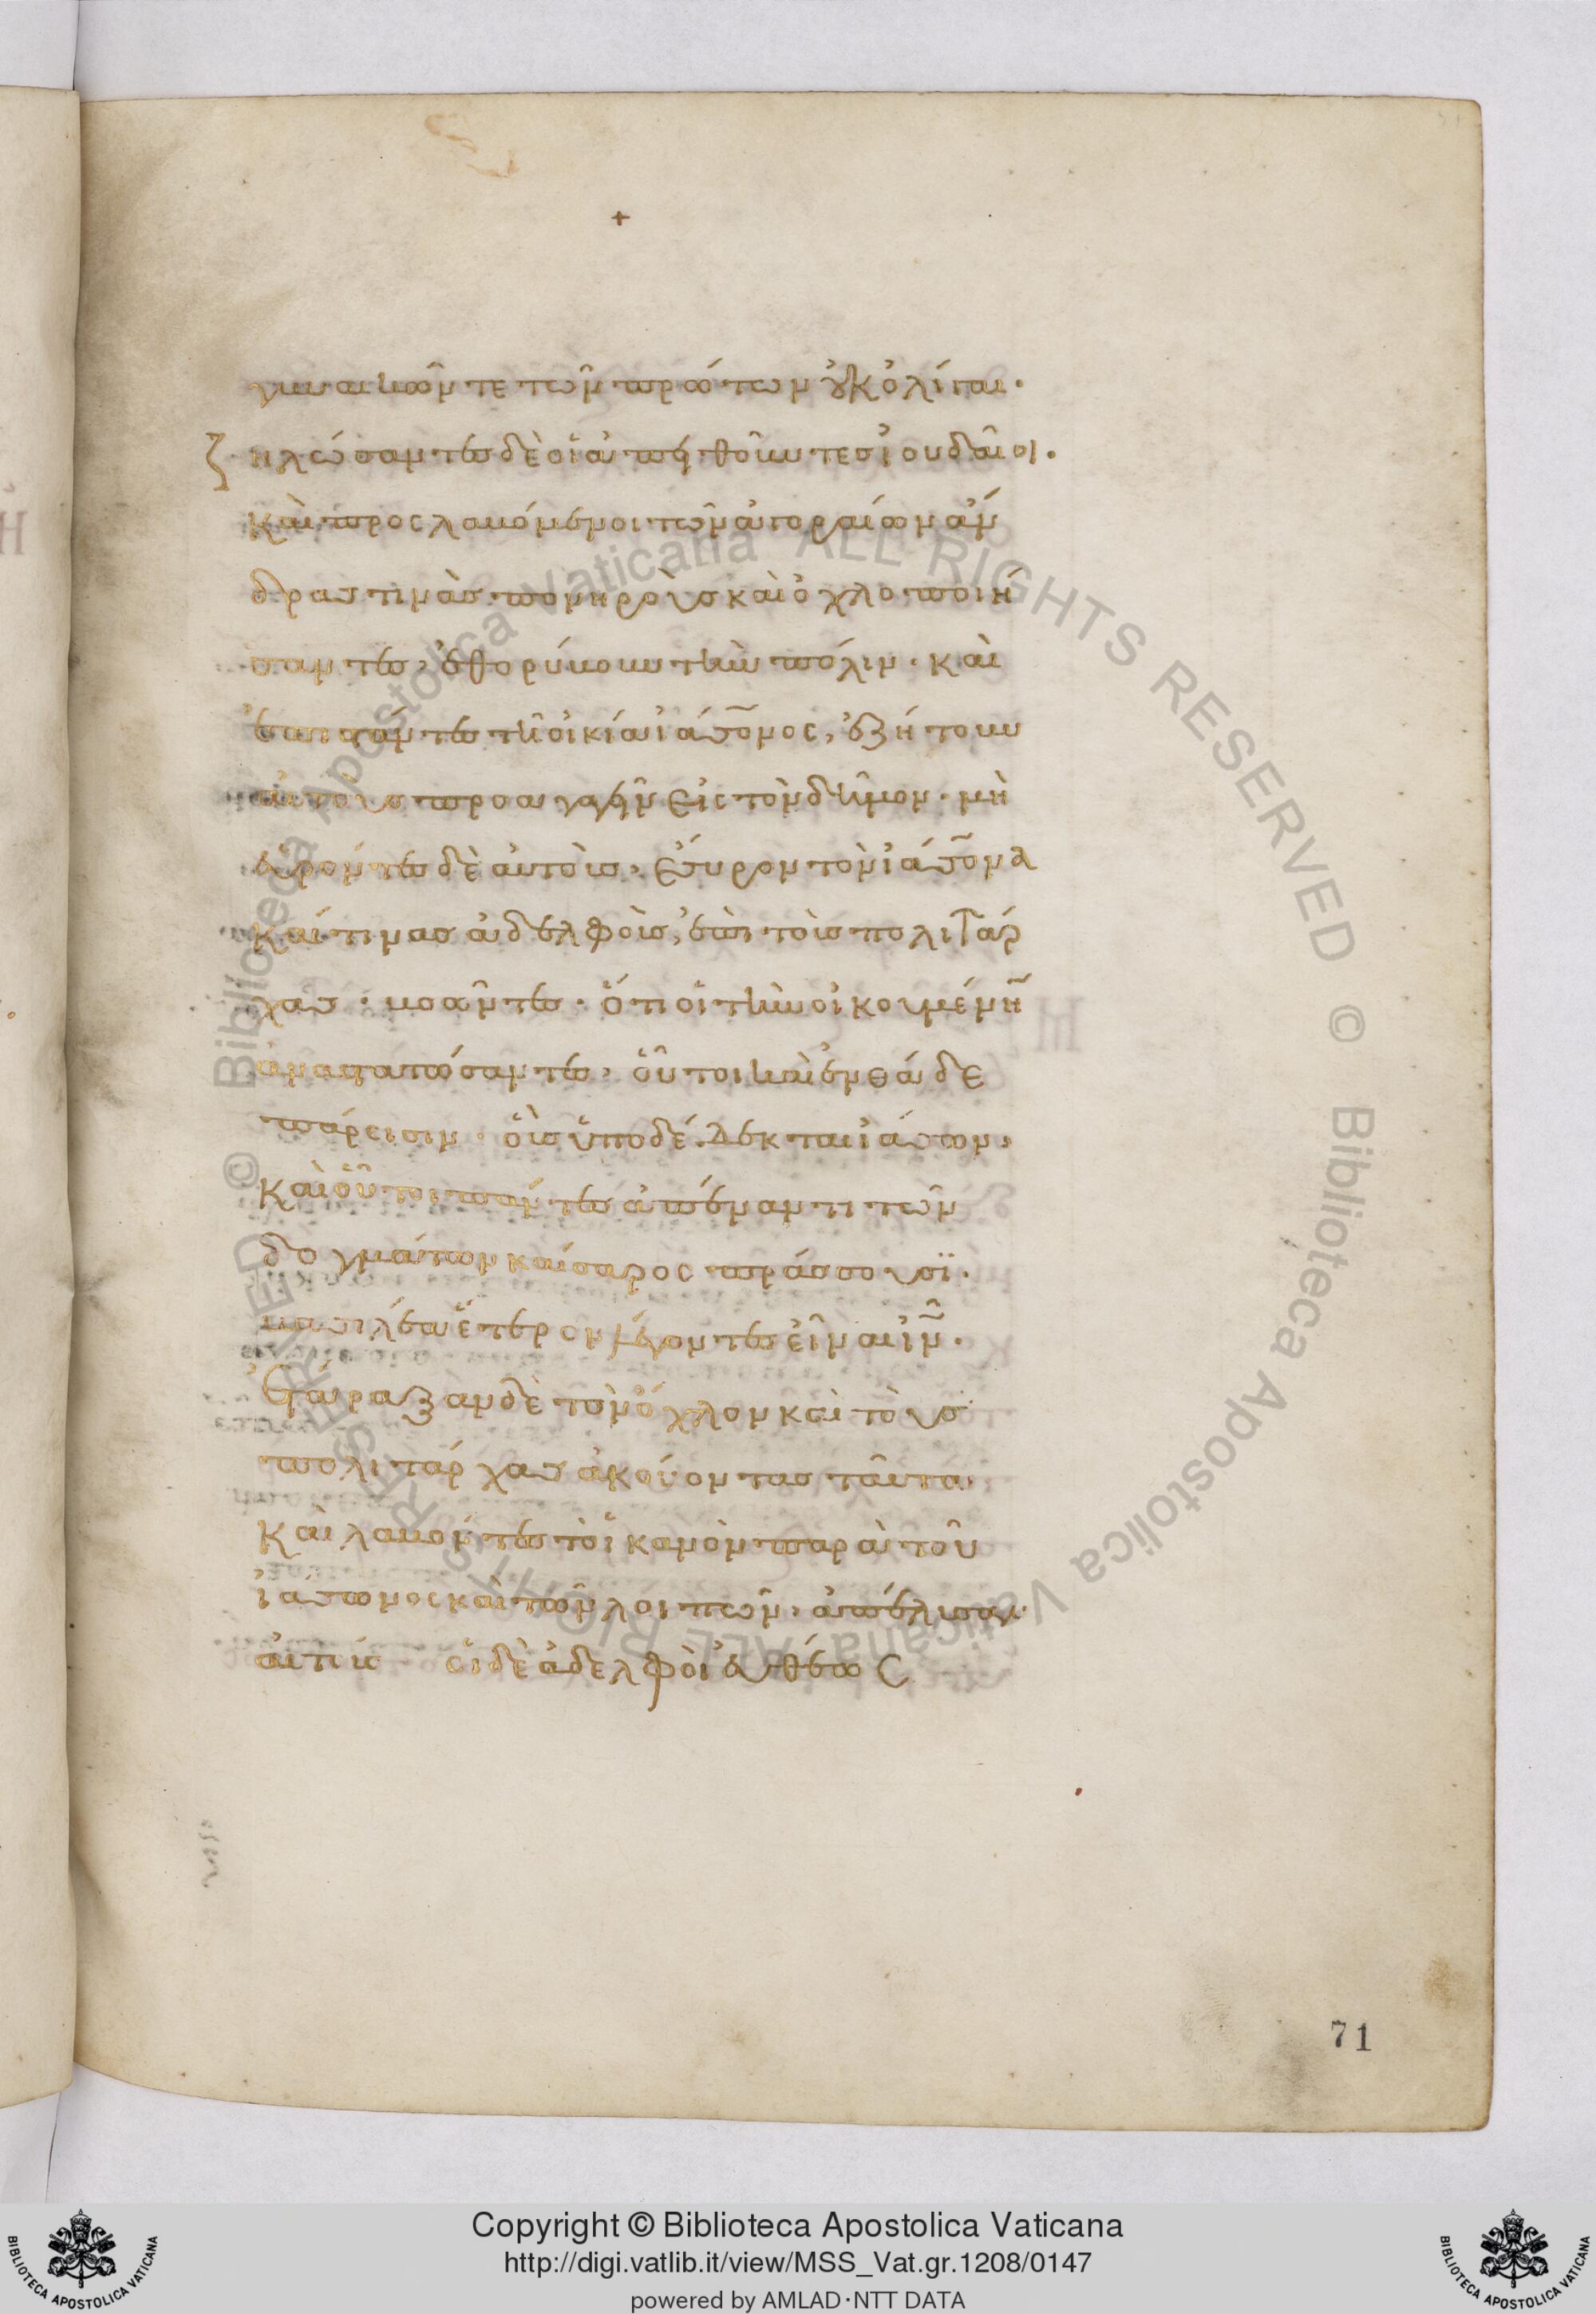 +
γυναικῶν τε τῶν πρώτων οὐκ ὀλίγαι·
ζηλώσαντες δὲ οἱ ἀπειθοῦντες ἰουδαῖοι·
καὶ προςλαβόμενοι τῶν ἀγοραίων ἄν
δρας τινὰς πονηροὺς καὶ ὀχλοποιή
σαντες, ἐθορύβουν τὴν πόλιν· καὶ
ἐπιστάντες τῆ οἰκία ἰάσονος, ἐζήτουν
αὐτοὺς προσαγαγεῖν εἰς τὸν δῆμον· μὴ
εὑρόντες δὲ αὐτοὺς, ἔσυρον τὸν ἰάσονα
καί τινας ἀδελφοὺς, ἐπὶ τοὺς πολιτάρ
χας· βοῶντες· ὅτι οἱ τὴν οἰκουμένην
ἀναστατώσαντες, οὗτοι καὶ ἐνθάδε
πάρεισιν· οὓς ὑποδέδεκται ἰάσων,
καὶ οὗτοι πάντες ἀπέναντι τῶν
δογμάτων καίσαρος πράσσουσι·
βασιλέα ἕτερον λέγοντες εἶναι ἰν·
ἐτάραξαν δὲ τὸν ὄχλον καὶ τοὺς
πολιτάρχας ἀκούοντας ταῦτα·
καὶ λαβόντες τὸ ἱκανὸν παρὰ τοῦ
ἰάσωνος καὶ τῶν λοιπῶν, ἀπέλυσαν
αὐτούς οἱ δὲ ἀδελφοὶ εὐθέως
71
© Biblioteca Apostolica Vaticana ALL RIGHTS RESERVED © Biblioteca Apostolica Vaticana ALL RIGHTS RESERVED
Copyright © Biblioteca Apostolica Vaticana
http://digi.vatlib.it/view/MSS_Vat.gr.1208/0147
powered by AMLAD·NTT DATA
BIBLIOTECA APOSTOLICA VATICANA
BIBLIOTECA APOSTOLICA VATICANA